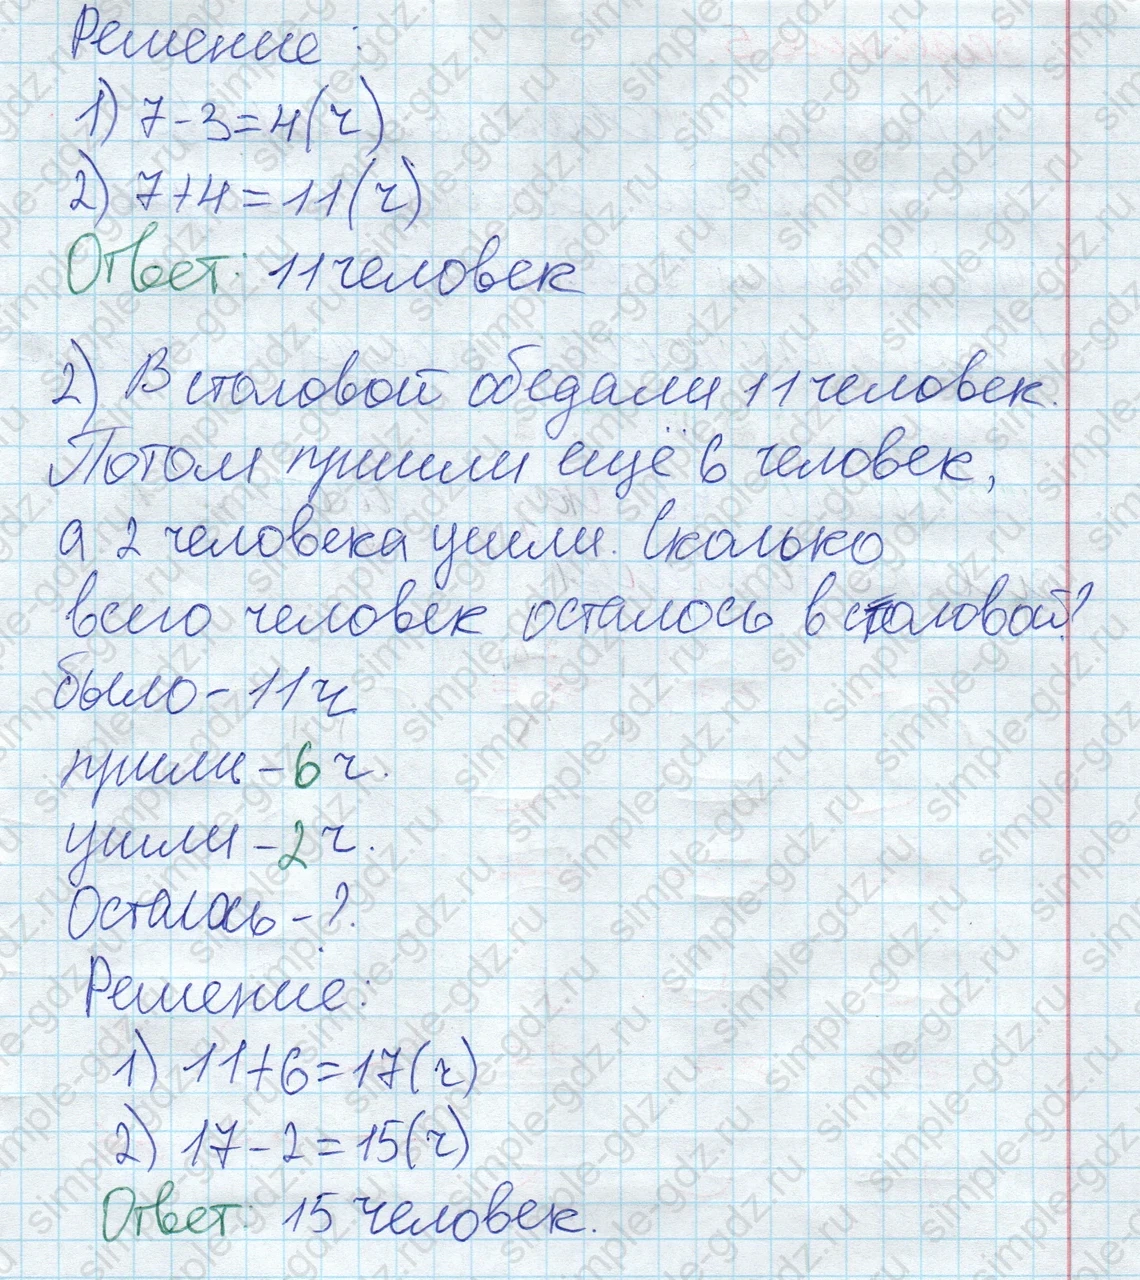 Решение:
1) 7-3=4(ч)
2) 7+4=11(ч)
Ответ: 11 человек
2) В столовой обедали 11 человек.
Потом пришли ещё 6 человек,
а 2 человека ушли. Сколько
всего человек осталось в столовой?
было - 11 ч
пришли - 6 ч.
ушли - 2 ч.
Осталось - ?
Решение:
1) 11+6=17(ч)
2) 17-2=15(ч)
Ответ: 15 человек.
simple-gdz.ru